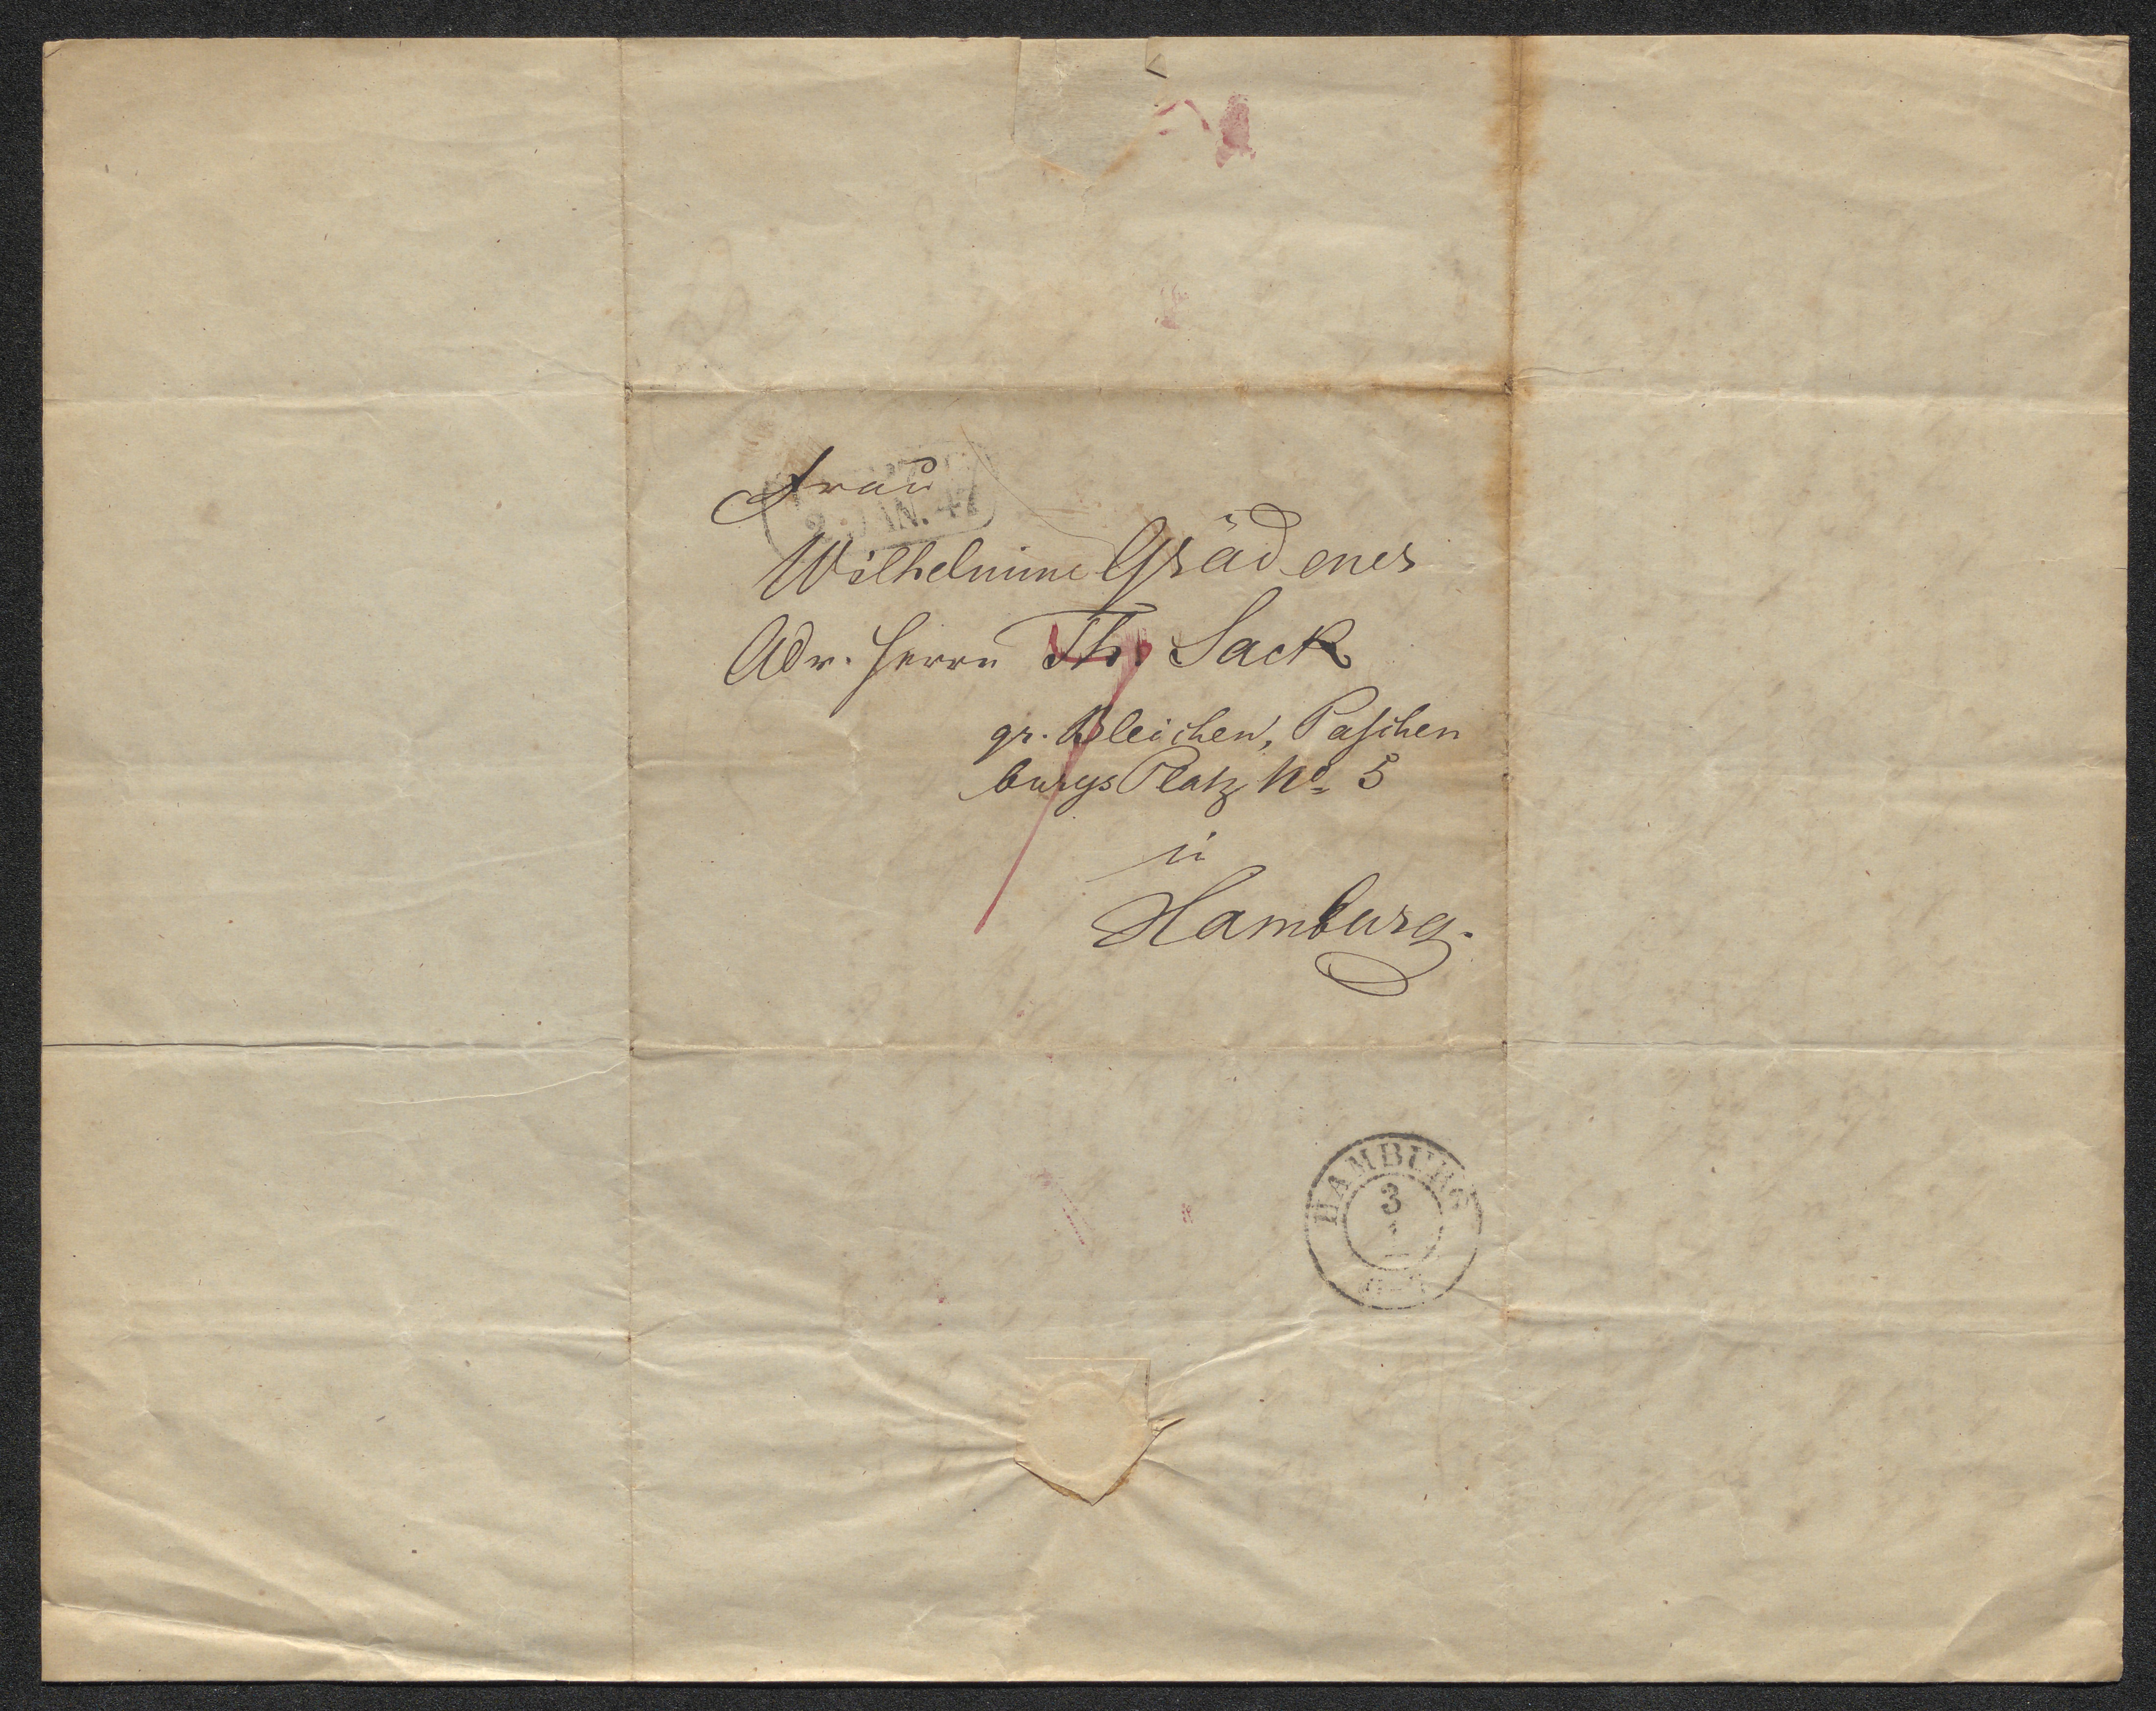 Frau
2. JAN. 47
Wilhelmine Grädener
Adr. Herrn Th. Sack
gr. Bleichen, Paſchen
burgs Platz No 5
in
Hamburg.
HAMBURG
3
1